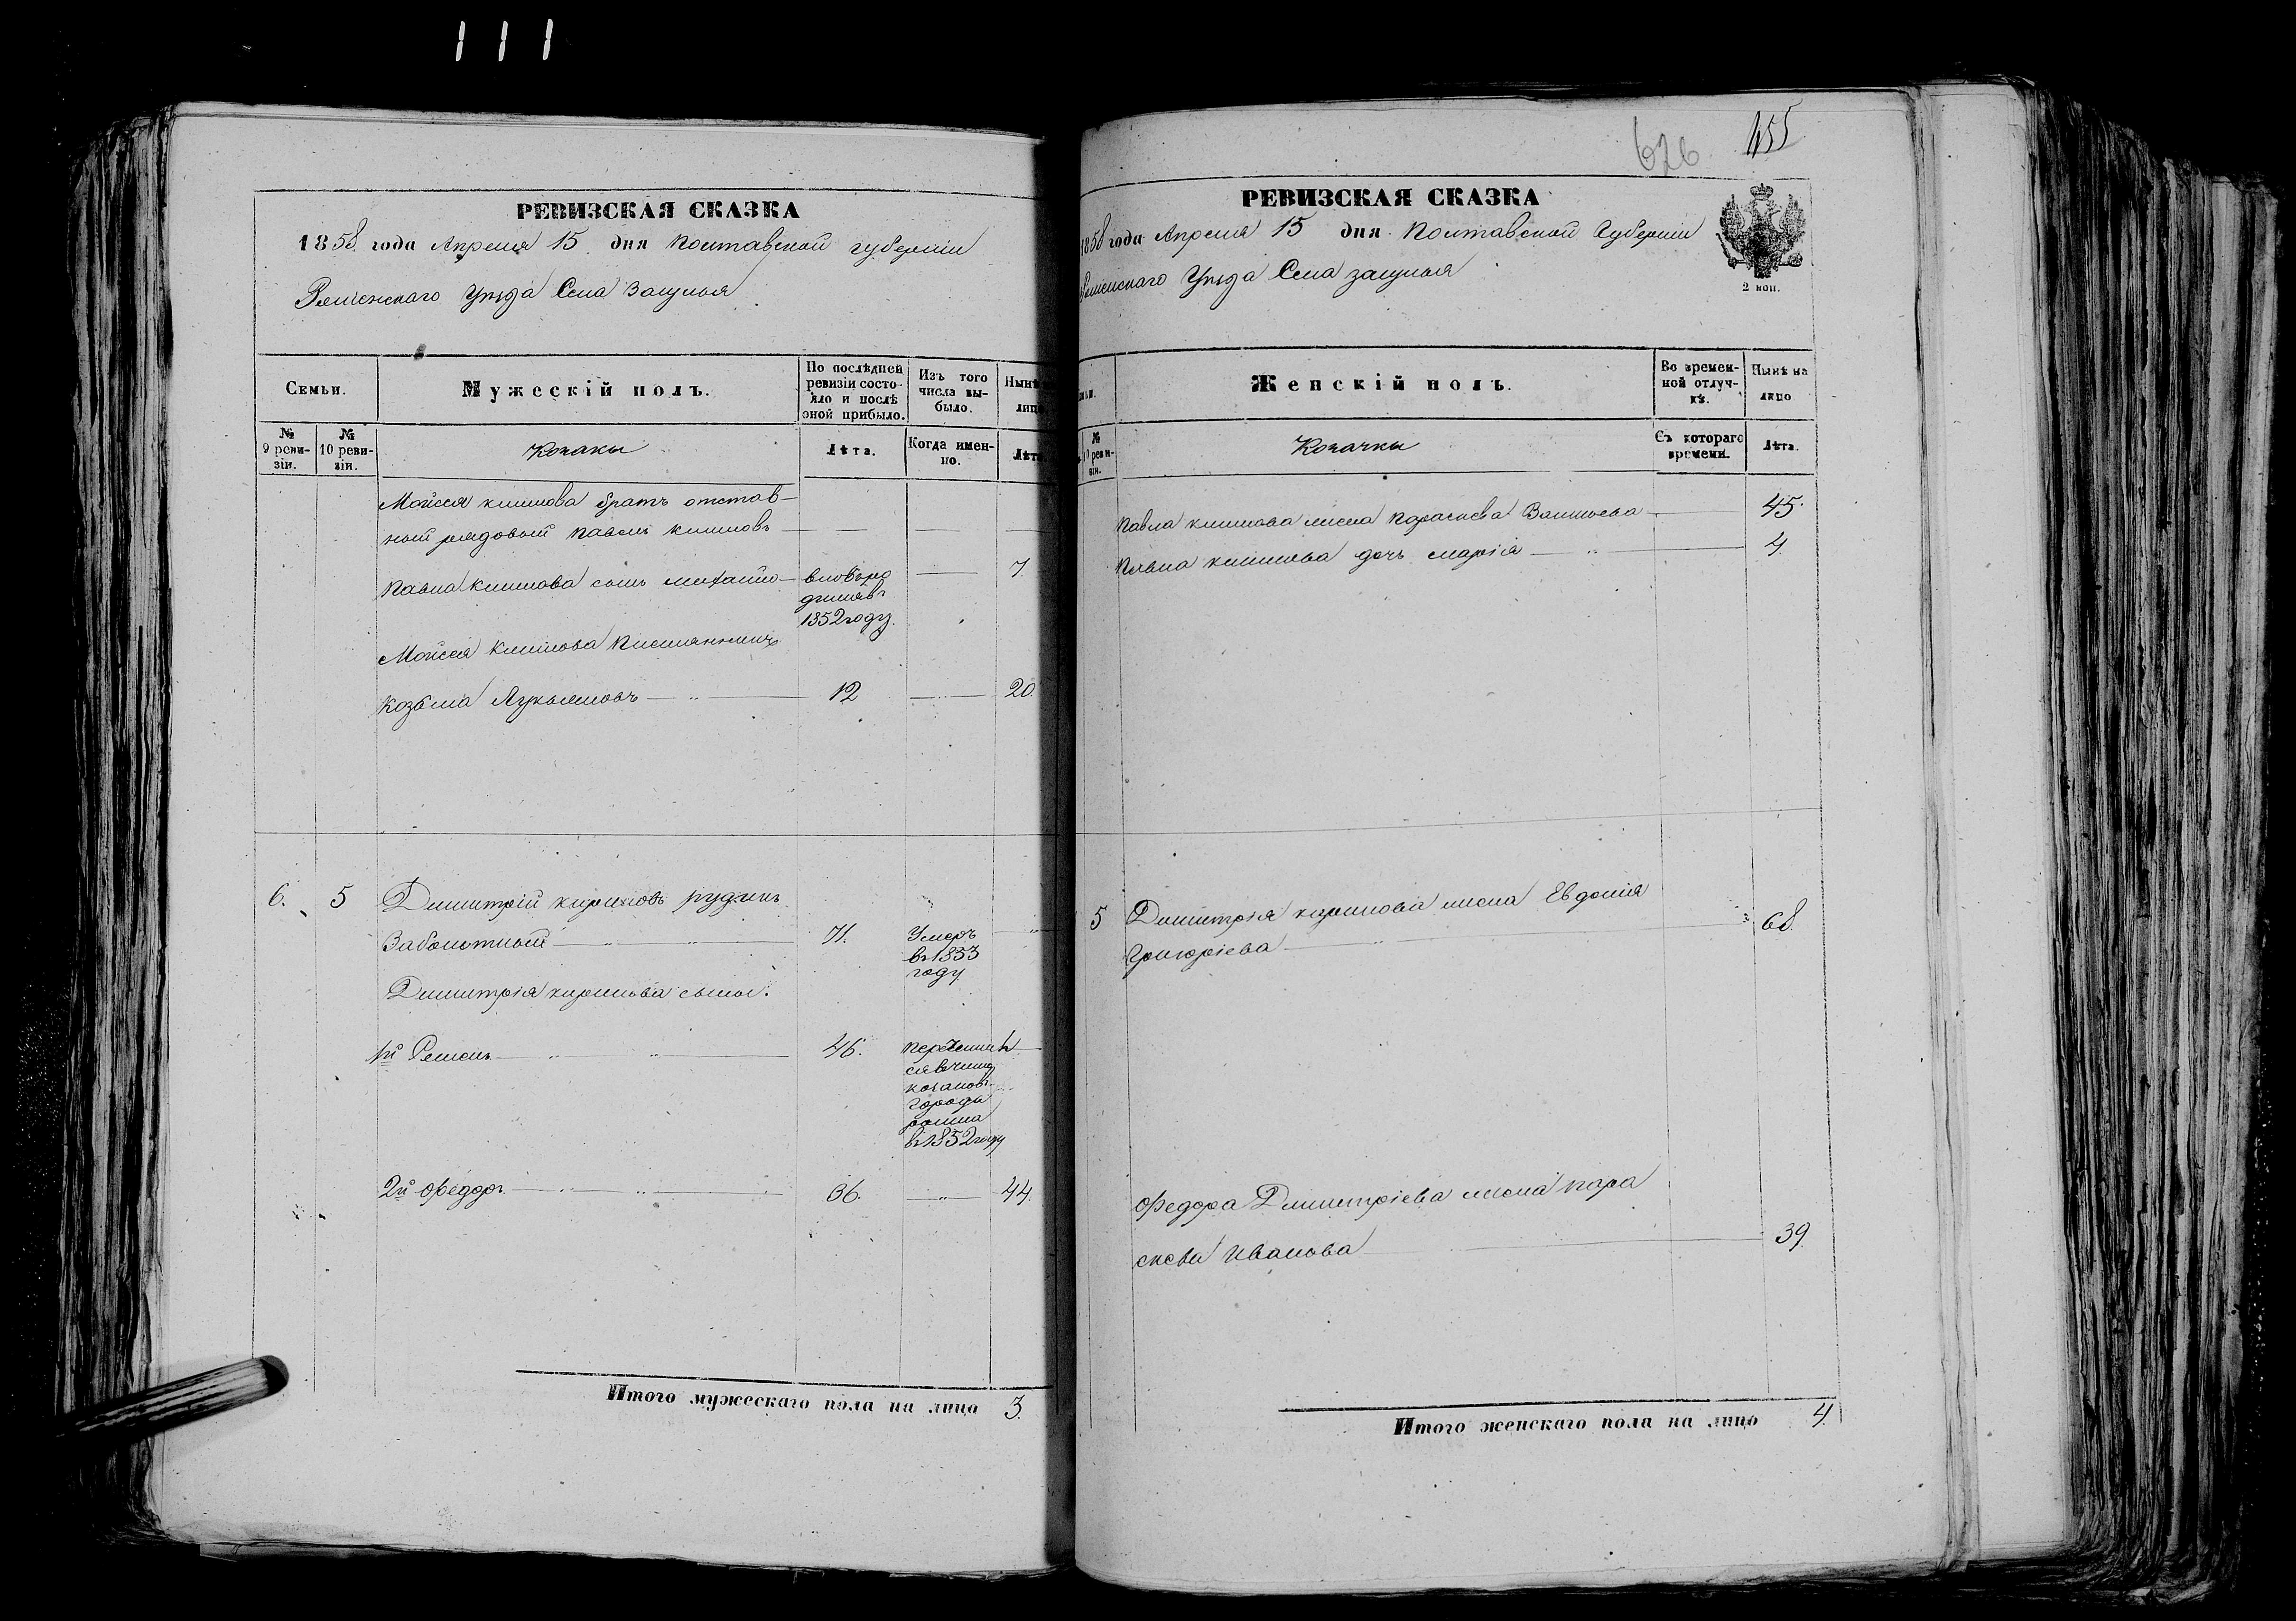 111
РЕВИЗСКАЯ СКАЗКА
1858 года Апреля 15 дня Полтавской губерніи
Роменскаго Уѣзда Села
Семьи.
Мужескій полъ.
По послѣдней ревизіи состояло и послѣ оной прибыло.
Изъ того числа выбыло.
Нынѣ лицо
№ 9 ревизіи.
№ 10 ревизіи.
Козаки
Лѣта.
Когда именно.
Лѣта
Мойсея Климова братъ отстав-
ной рядовой Павелъ Климовъ
Павла Климова сынъ Михайло вновь ро 7
дился въ
1852 году.
Мойсея Климова
Козьма Лукьяновъ 12 20.
6. 5 Димитрій Кириловъ
Заболотный 71. Умеръ
въ 1853
году
Димитрія Кирилова сыны:
1й Роман 46. перечислил
ся в число
козаков
города
ромна
въ 1852 году
2й Федоръ 36. 44.
Итого мужескаго пола на лицо 3.
626 455
РЕВИЗСКАЯ СКАЗКА
1858 года Апреля 15 дня Полтавской Губерніи
Роменскаго Уѣзда Села
2 коп.
№ 10 ревизіи.
Женскій полъ.
Во временной отлучкѣ.
Нынѣ на лицо
Козачки
Съ котораго времени.
Лѣта.
Павла Климова жена Параскева Васильева 45.
Павла Климова дочь Марія 4.
5 Димитрія Кирилова жена Евдокія
Григоріева 68.
Федора Димитріева жена Пара
скева Иванова 39.
Итого женскаго пола на лицо 4.